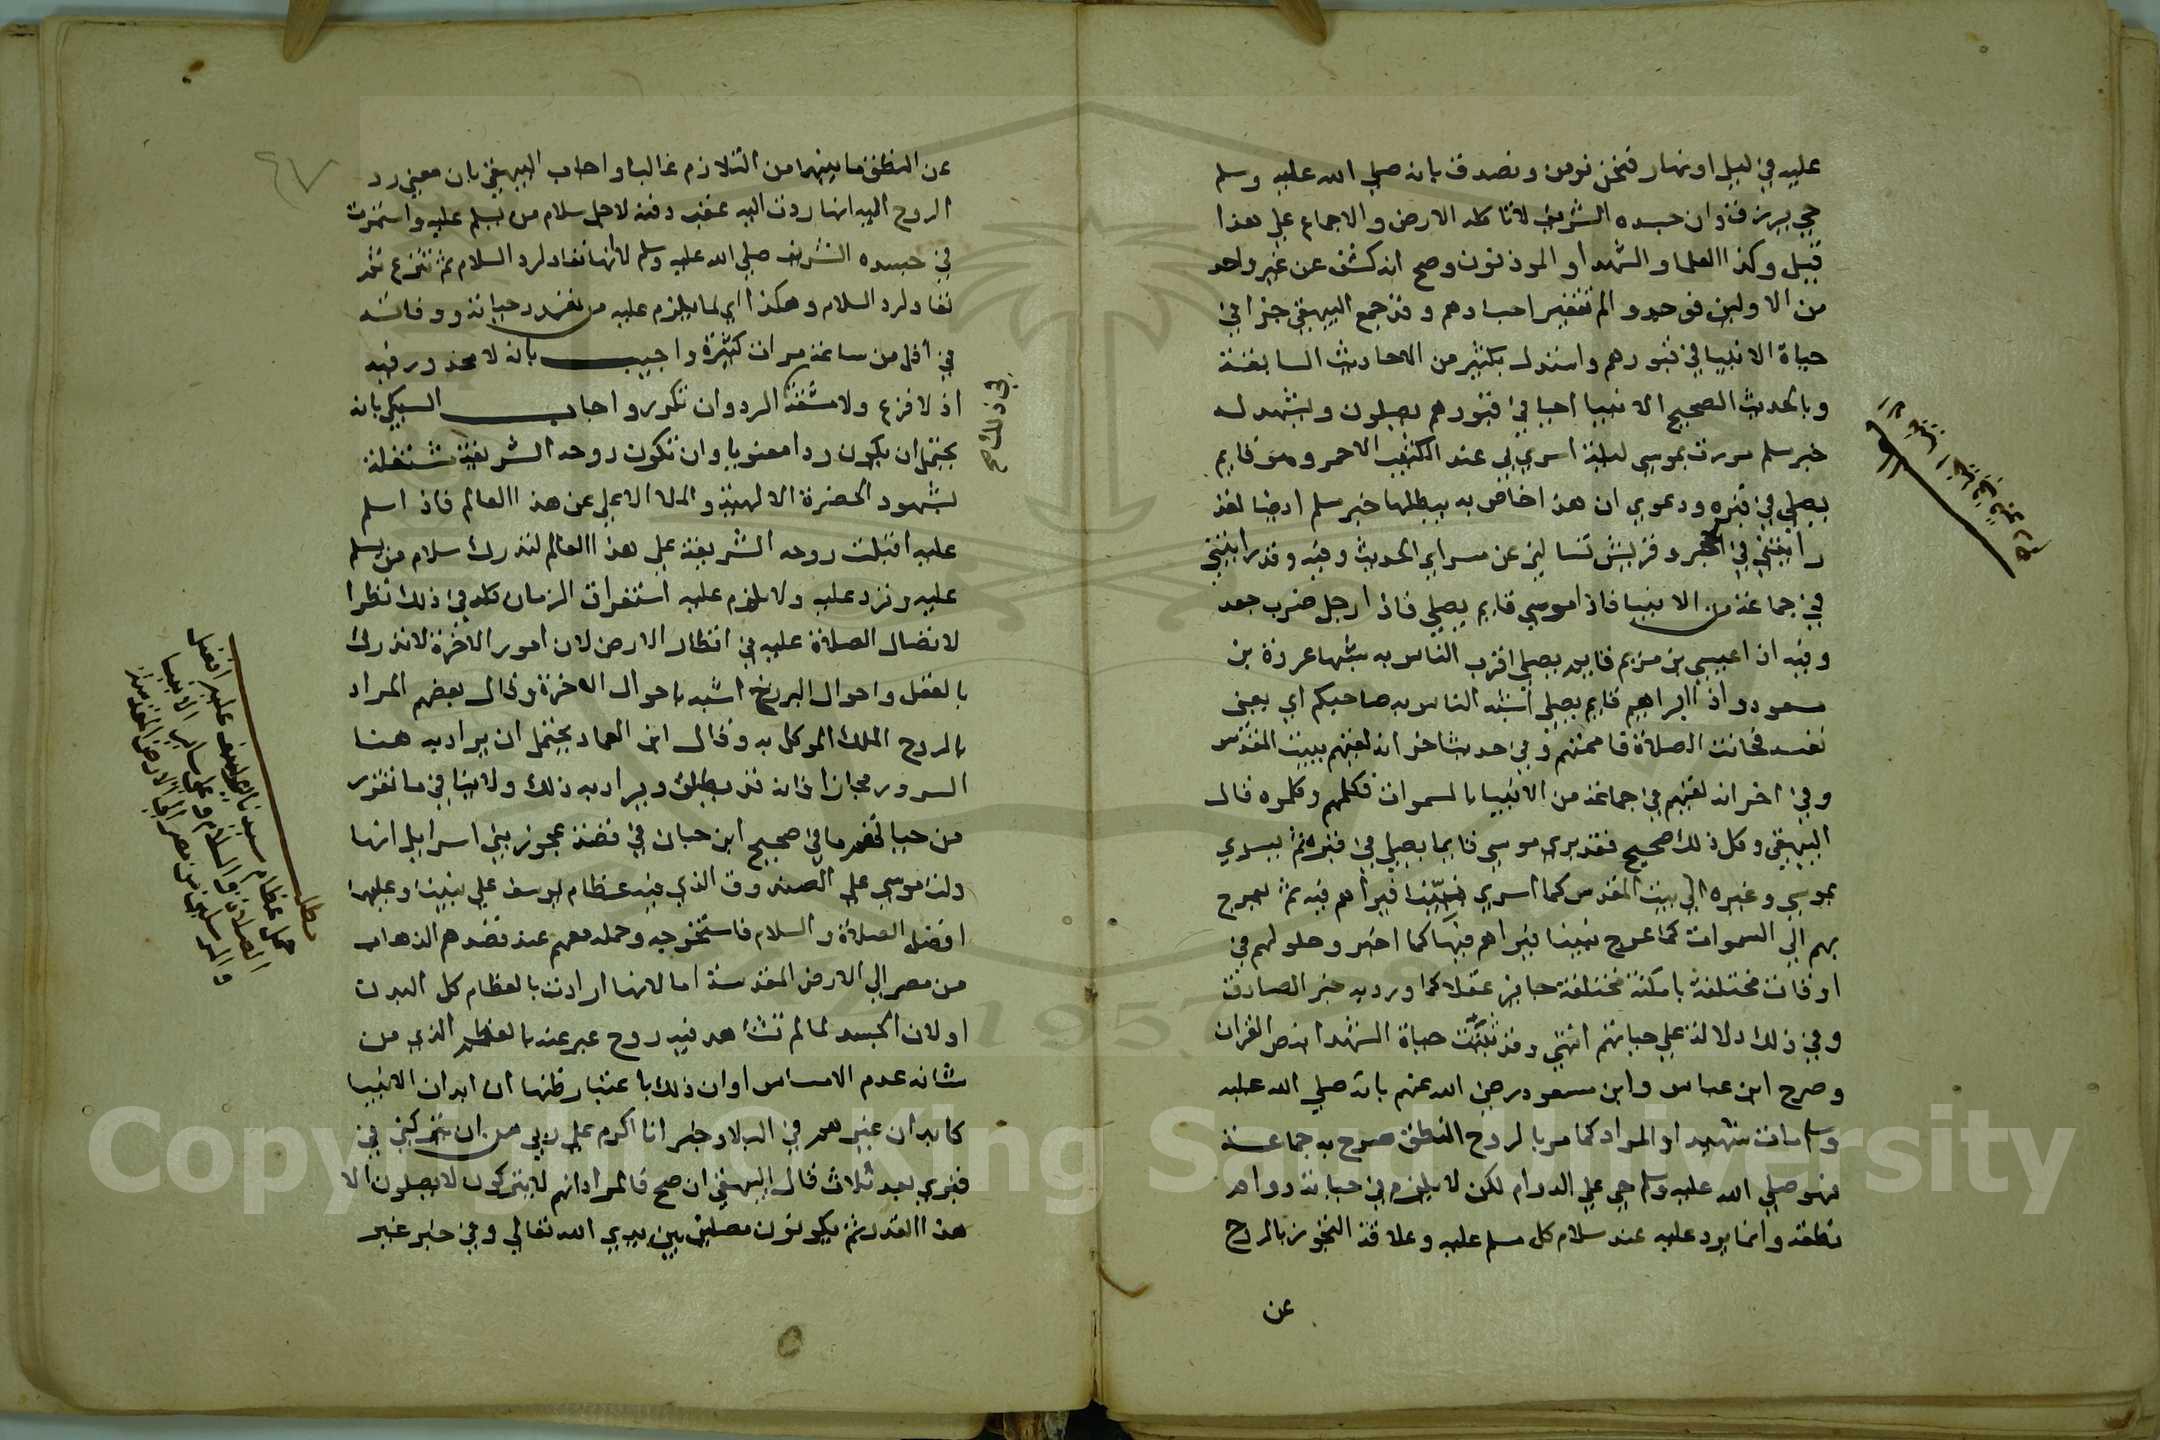 عليه في ليل او نهار فنحن نومن ونصدق بانه صلي الله عليه وسلم
حي يرزق وان جسده الشريف لا تاكله الارض والاجماع علي هذا
قيل وكذا العلما والشهدا والموذنون وصح انه كشف عن غير واحد
من الاولين فوجدوا لم تتغير اجسادهم وقد جمع البيهقي جزا في
حياة الانبيا في قبورهم واستدل بكثير من الاحاديث السابقة
وبالحديث الصحيح الانبيا احيا في قبورهم يصلون ويشهد له
خبر مسلم مررت بموسي ليلة اسري بي عند الكثيب الاحمر وهو قايم
يصلي في قبره ودعوي ان هذا خاص به يبطلها خبر مسلم ايضا لقد
رايتني في الحجر وقريش تسالني عن مسراي الحديث وفيه وقد رايتني
في جماعة من الانبيا فاذا موسي قايم يصلي فاذا رجل ضرب جعد
وفيه اذا عيسي بن مريم قايم يصلي اقرب الناس به شبها عروة بن
مسعود واذا ابراهيم قايم يصلي اشبه الناس به صاحبكم اي يعني
نفسه فحانت الصلاة فاممتهم وفي حديث اخر انه لقيهم ببيت المقدس
وفي اخر انه لقيهم في جماعة من الانبيا بالسموات فكلمهم وكلموه قال
البيهقي وكل ذلك صحيح فقد يري موسي قايما يصلي في قبره ثم يسري
بموسي وغيره الي بيت المقدس كما اسري بنبينا فيراهم فيه ثم يعرج
بهم الي السموات كما عرج نبينا فيراهم فيها كما اخبر وحلولهم في
اوقات مختلفة بامكنة مختلفة جايز عقلا كما ورد به خبر الصادق
وفي ذلك دلالة علي حياتهم انتهي وقد ثبتت حياة الشهدا بنص القران
وصرح ابن عباس وابن مسعود رضي الله عنهم بانه صلي الله عليه
وسلم مات شهيدا والمراد كما مر بالروح النطق صرح به جماعة
فهو صلي الله عليه وسلم حي علي الدوام لكن لا يلزم في حياته دوام
نطقه وانما يرد عليه عند سلام كل مسلم عليه وعلاقة التجوز بالروح
عن
عن النطق ما بينهما من التلازم غالبا واجاب البيهقي بان معني رد
الروح اليه انها ردت اليه عقب دفنه لاجل سلام من يسلم عليه واستمرت
في جسده الشريف صلي الله عليه وسلم لا انها تعاد لرد السلام ثم تنزع ثم
تعاد لرد السلام وهكذا اي لما يلزم عليه من تعدد حياته ووفاته
في اقل من ساعة مرات كثيرة واجيب بانه لا محذور فيه
اذ لا نزع ولا مشقة الرد وان تكرر واجاب السبكي بانه
يحتمل ان يكون ردا معنويا وان تكون روحه الشريفة مشتغلة
بشهود الحضرة الالهية والملا الاعلي عن هذا العالم فاذا سلم
عليه اقبلت روحه الشريفة علي هذا العالم لتدرك سلام من يسلم
عليه وترد عليه ولا يلزم عليه استغراق الزمان كله في ذلك نظرا
لاتصال الصلاة عليه في اقطار الارض لان امور الاخرة لا تدرك
بالعقل واحوال البرزخ اشبه باحوال الاخرة وقال بعضهم المراد
بالروح الملك الموكل به وقال ابن العماد يحتمل ان يراد به هنا
السرور مجازا فانه قد يطلق ويراد به ذلك ولا ينافي ما تقرر
من حياتهم ما في صحيح ابن حبان في قصة عجوز بني اسرايل انها
دلت موسي علي الصندوق الذي فيه عظام يوسف علي نبينا وعليهما
افضل الصلاة والسلام فاستخرجه وحمله معهم عند قصدهم الذهاب
من مصر الي الارض المقدسة اما لانها ارادت بالعظام كل البدن
او لان الجسد لما لم تشاهد فيه روح عبر عنه بالعظم الذي من
شانه عدم الاحساس او ان ذلك باعتبار ظنها ان ابدان الانبيا
كابدان غيرهم في البلاء وخبر انا اكرم علي ربي من ان يتركني في
قبري بعد ثلاث قال البيهقي ان صح فالمراد انهم لا يتركون لا يصلون الا
هذا القدر ثم يكونون مصلين بين يدي الله تعالي وفي خبر غير
في ذلك صح
مطلب
حمل عظام سيدنا يوسف عليه افضل
الصلاة والسلام وعلي ساير الانبيا
والمرسلين من مصر الي الارض المقدسة
٤٧